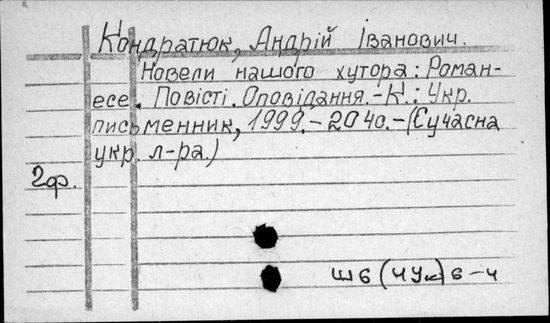 Кондратюк, Андрій Іванович.
Новели нашого хутора: Роман-
есе. Повісті. Оповідання.-К.: Укр.
письменник, 1999.-204с.-(Сучасна
укр. л-ра.)
2ф.
Ш6(4Ук)6-4